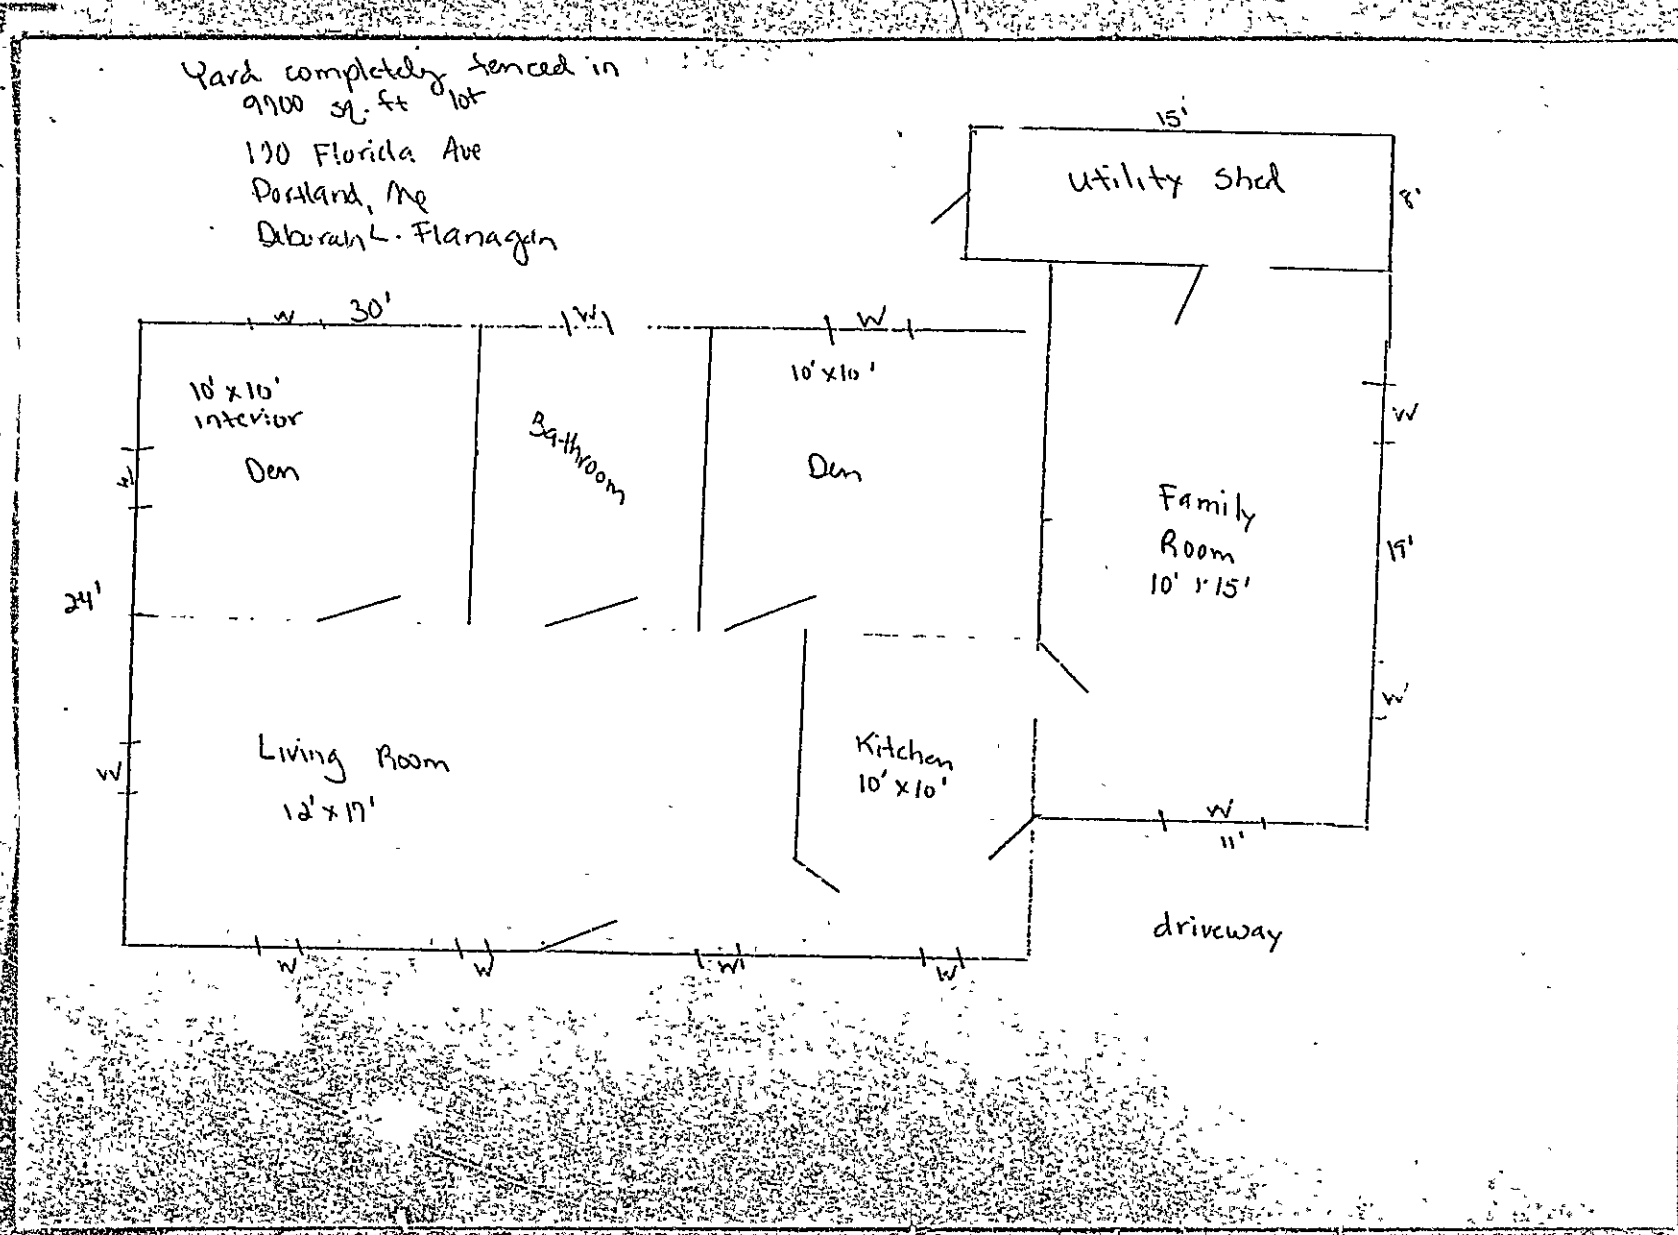 Yard completely fenced in
9700 sq. ft lot
170 Florida Ave
Portland, Me
Deborah L. Flanagan
15'
Utility Shed
8'
W 30' W W
10' x 10'
interior
Den
Bathroom
10' x 10'
Den
W
W
Family
Room
10' x 15'
19'
24'
W
Living Room
12' x 17'
Kitchen
10' x 10'
W
W
11'
driveway
W W W W